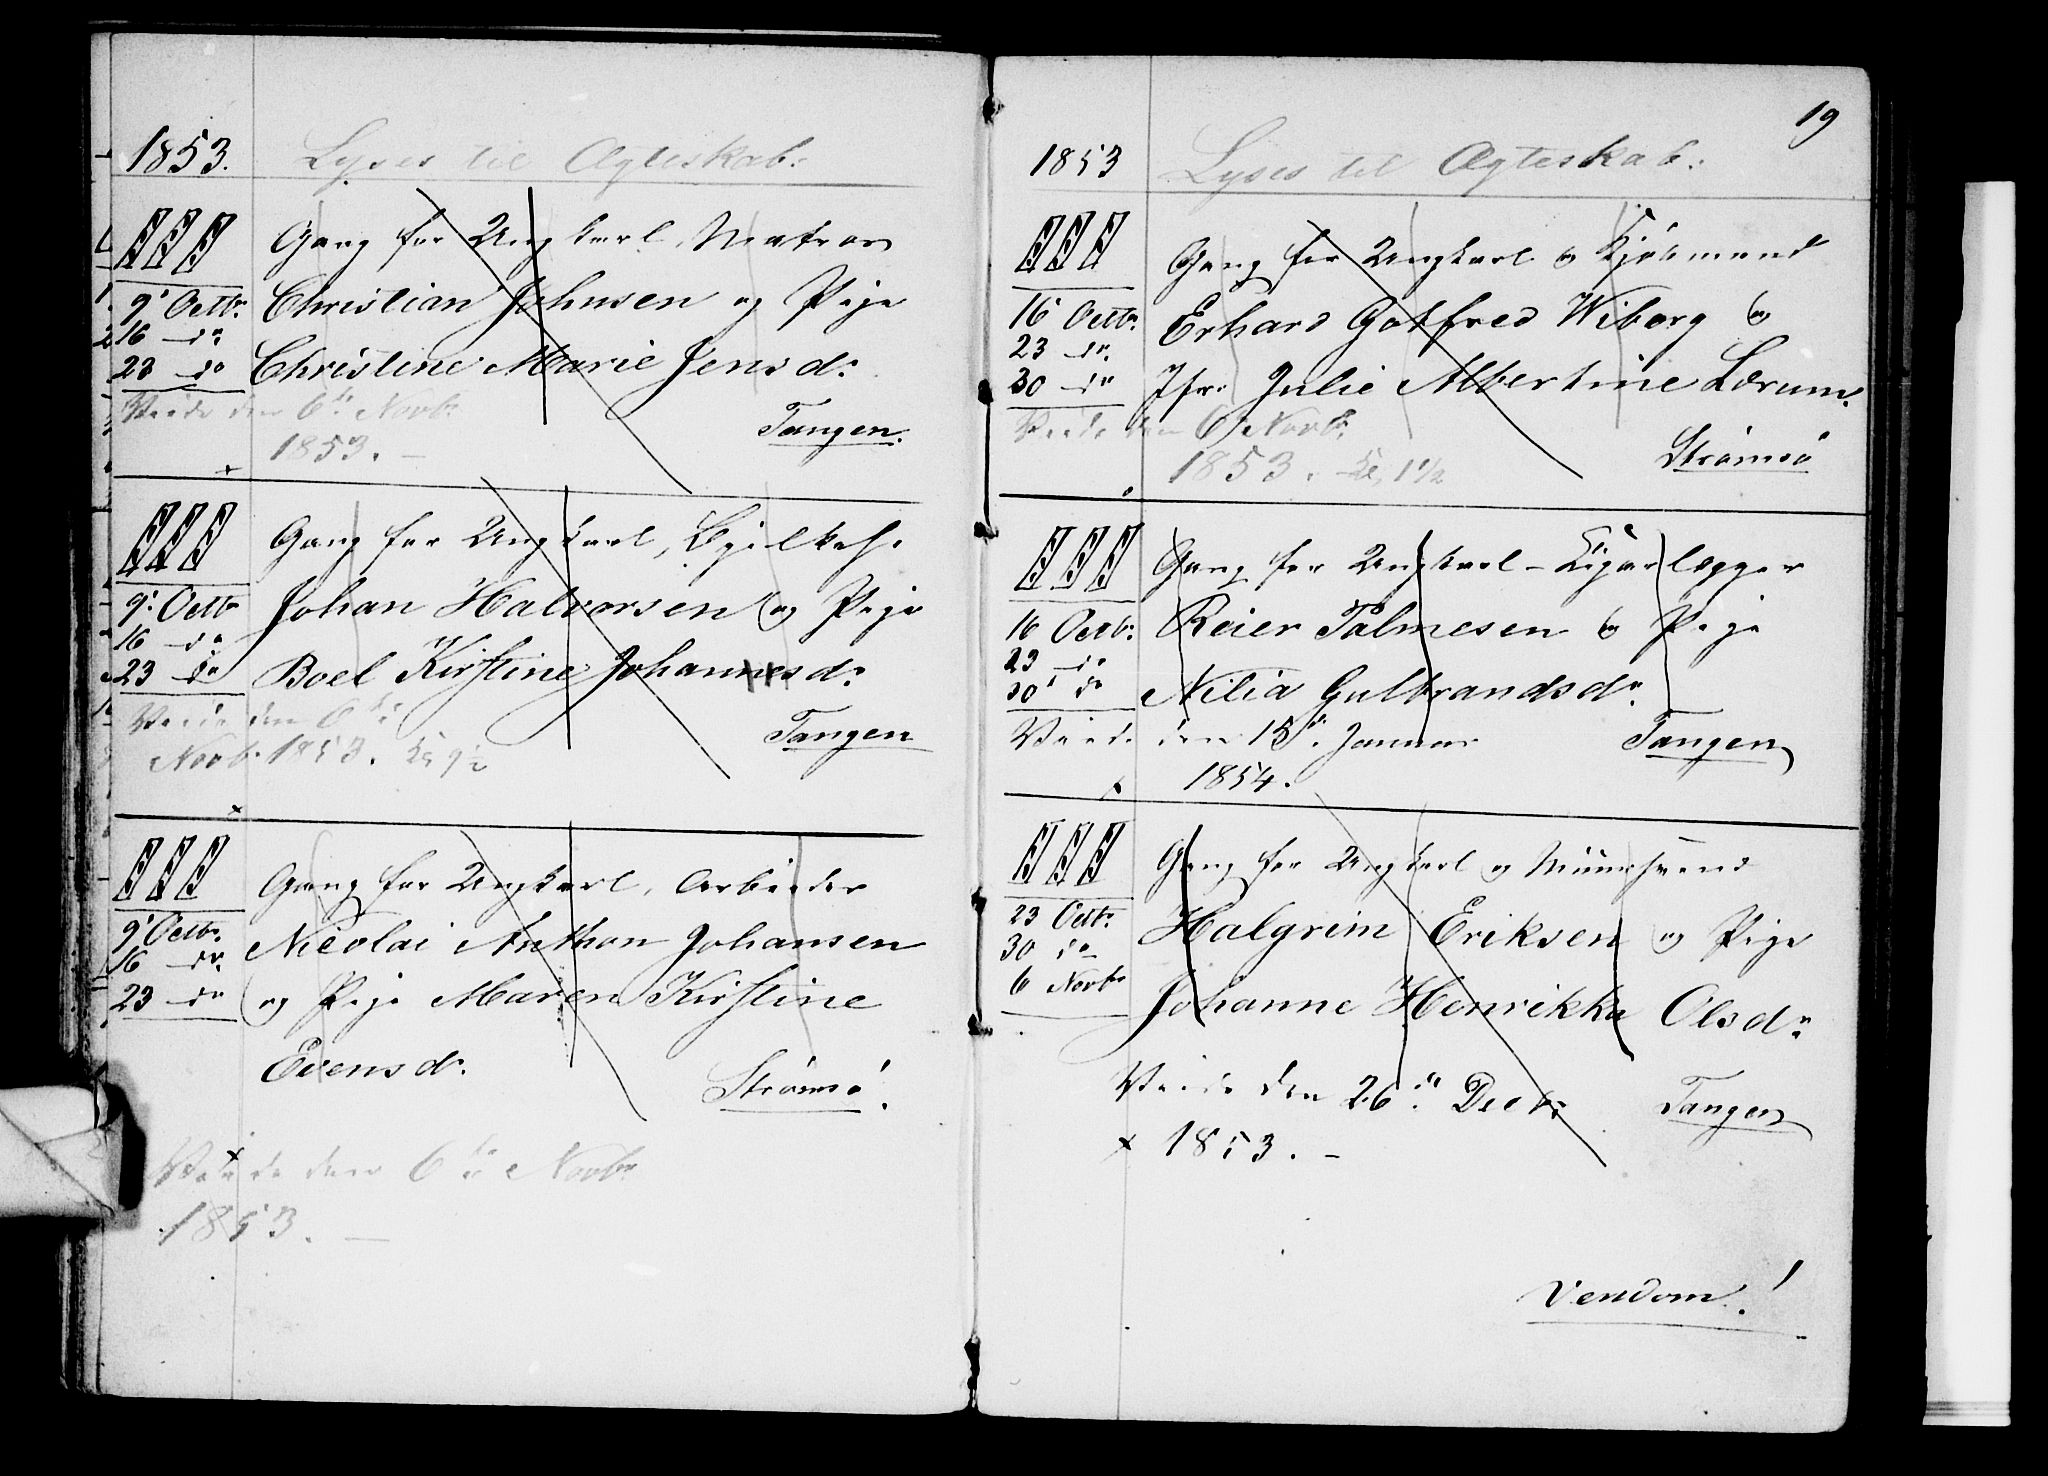 1853.
Lyses til Ægteskab:
III Gang for Ungkarl, Matros
9' Octbr. Christian Johnsen og Pige
16 do
23 do Christine Marie Jensdr.
Viede den 6te Novbr.
1853. –
Tangen.
III Gang for Ungkarl,
9' Octbr Johan Halvorsen og Pige
16 do
23 do Boel Kirstine Johannesdr.
Viede den 6te
Novbr. 1853. Kl 9½
Tangen
III Gang for Ungkarl, Arbeider
9' Octbr. Nicolai Anthon Johansen
16 do
23 do og Pige Maren Kirstine
Evensdr.
Strømsø.
Viede den 6te Novbr.
1853. –
19
1853
Lyses til Ægteskab:
III Gang for Ungkarl og Kjøbmand
16 Octbr. Erhard Gotfred Wiborg og
23 do
30 do Jfr. Julie Albertine Lærum.
Viede den 6 Novbr.
1853. Kl, 1½
Strømsø
III Gang for Ungkarl – Cigarlægger
16 Octbr. Reier Palmesen og Pige
23 do
30' do Nilia Gulbrandsdr.
Viede den 15de Januar
1854.
Tangen
III Gang for Ungkarl og Muursvend
23 Octbr. Halgrim Eriksen og Pige
30 do
6 Novbr Johanne Henrikka Olsdr.
Viede den 26de Decbr.
1853. –
Tangen
Vendom!